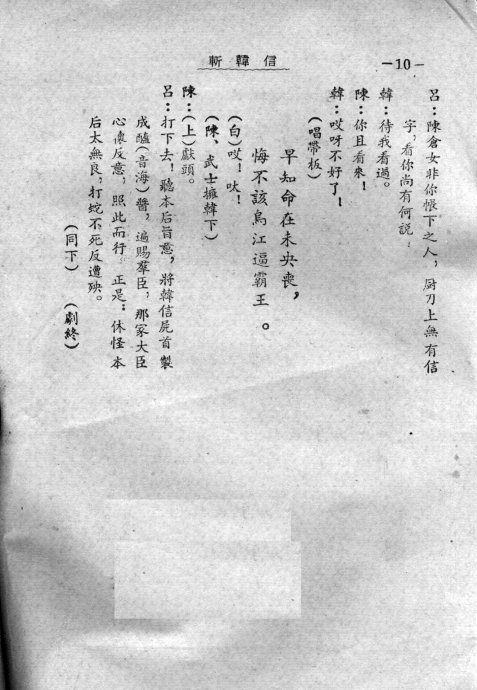 斬韓信
—10—
呂：陳倉女非你帳下之人，厨刀上無有信
字，看你尚有何說？
韓：待我看過。
陳：你且看來！
韓：哎呀不好了！
（唱帶板）
早知命在未央喪，
悔不該烏江逼霸王。
（白）哎！吠！
（陳、武士擁韓下）
陳：（上）獻頭。
呂：打下去！聽本后旨意，將韓信屍首製
成醢（音海）醬，遍賜羣臣，那家大臣
心懷反意，照此而行。正是：休怪本
后太無良，打蛇不死反遭殃。
（同下）　（劇終）